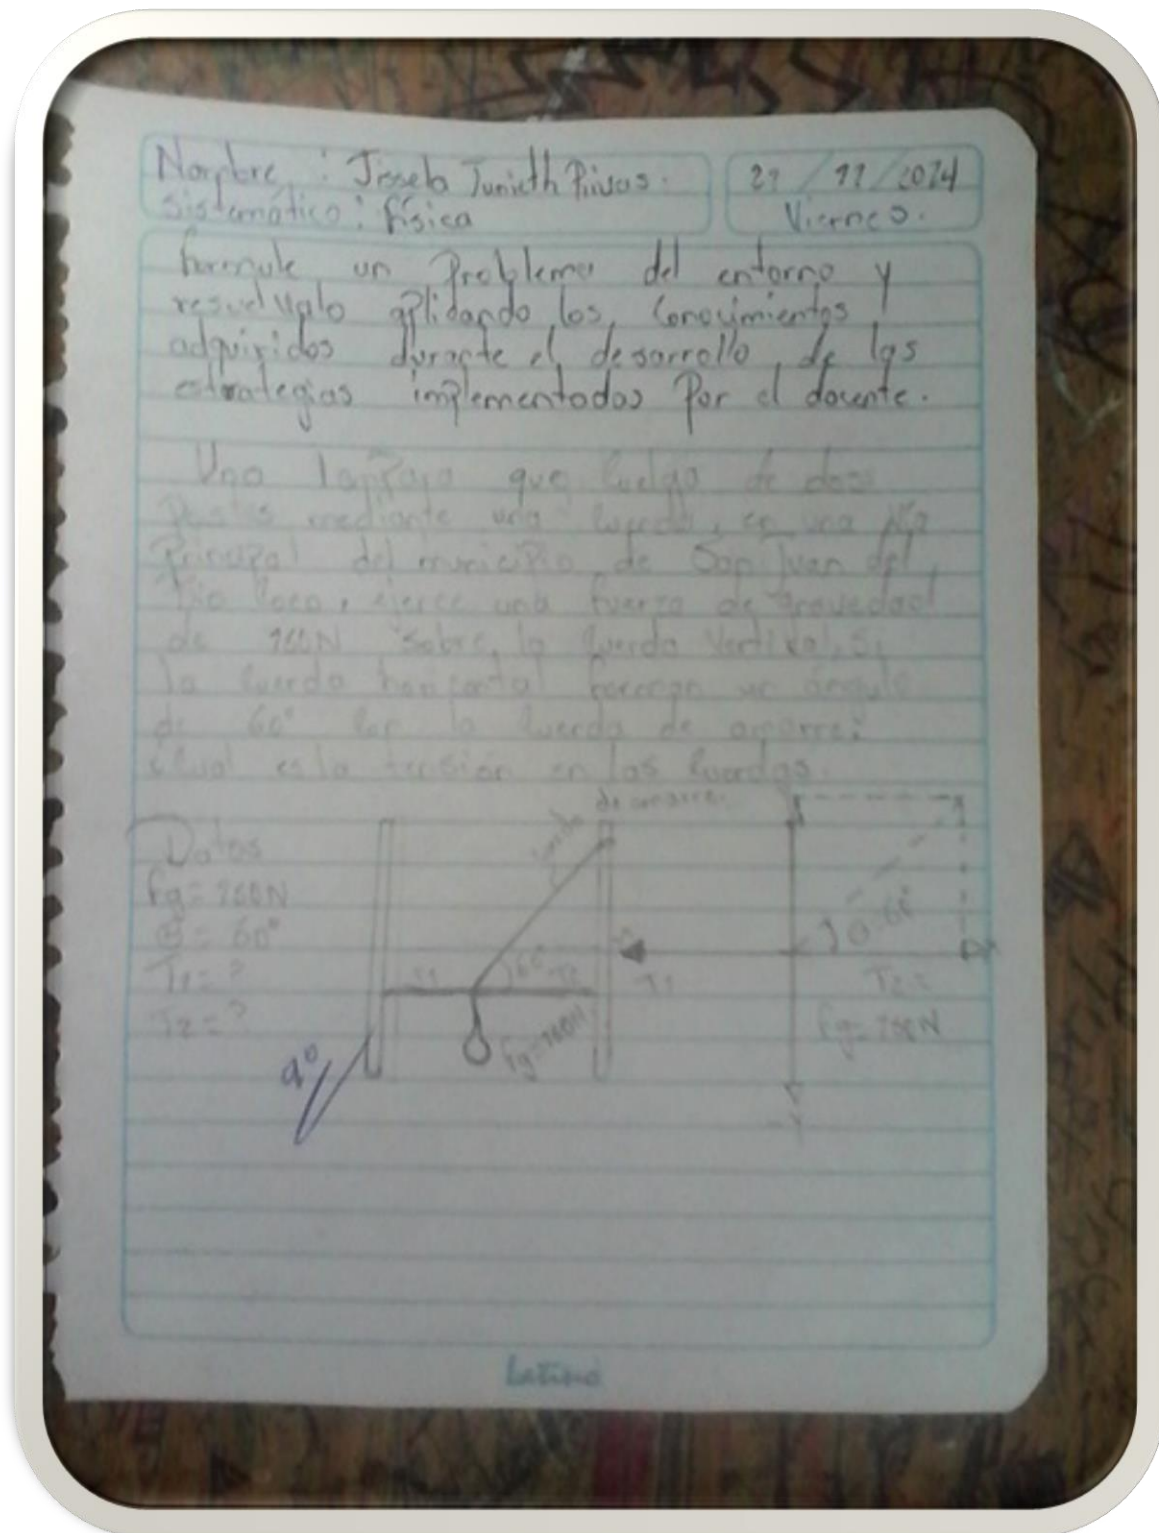 Nombre : Jissela Junieth Rivas.
21 / 11 / 2014
Sistemático : física
Viernes.
formule un Problema del entorno y
resuelvalo aplidando los conocimientos
adquiridos durante el desarrollo de las
estrategias implementadas Por el docente.
Una lampara que cuelga de dos
Postes mediante una cuerda, en una vía
Principal del municipio de San Juan del
Río Coco, ejerce una fuerza de gravedad
de 160N sobre la cuerda vertical. Si
la cuerda horizontal forman un ángulo
de 60° con la cuerda de amarre:
Cual es la tensión en las cuerdas.
cuerda de amarre
Datos
Fg = 160N
θ = 60°
T1 = ?
T2 = ?
T1
60°
T2
Fg = 160N
θ = 60°
T1
T2 =
Fg = 160N
9°
Latino